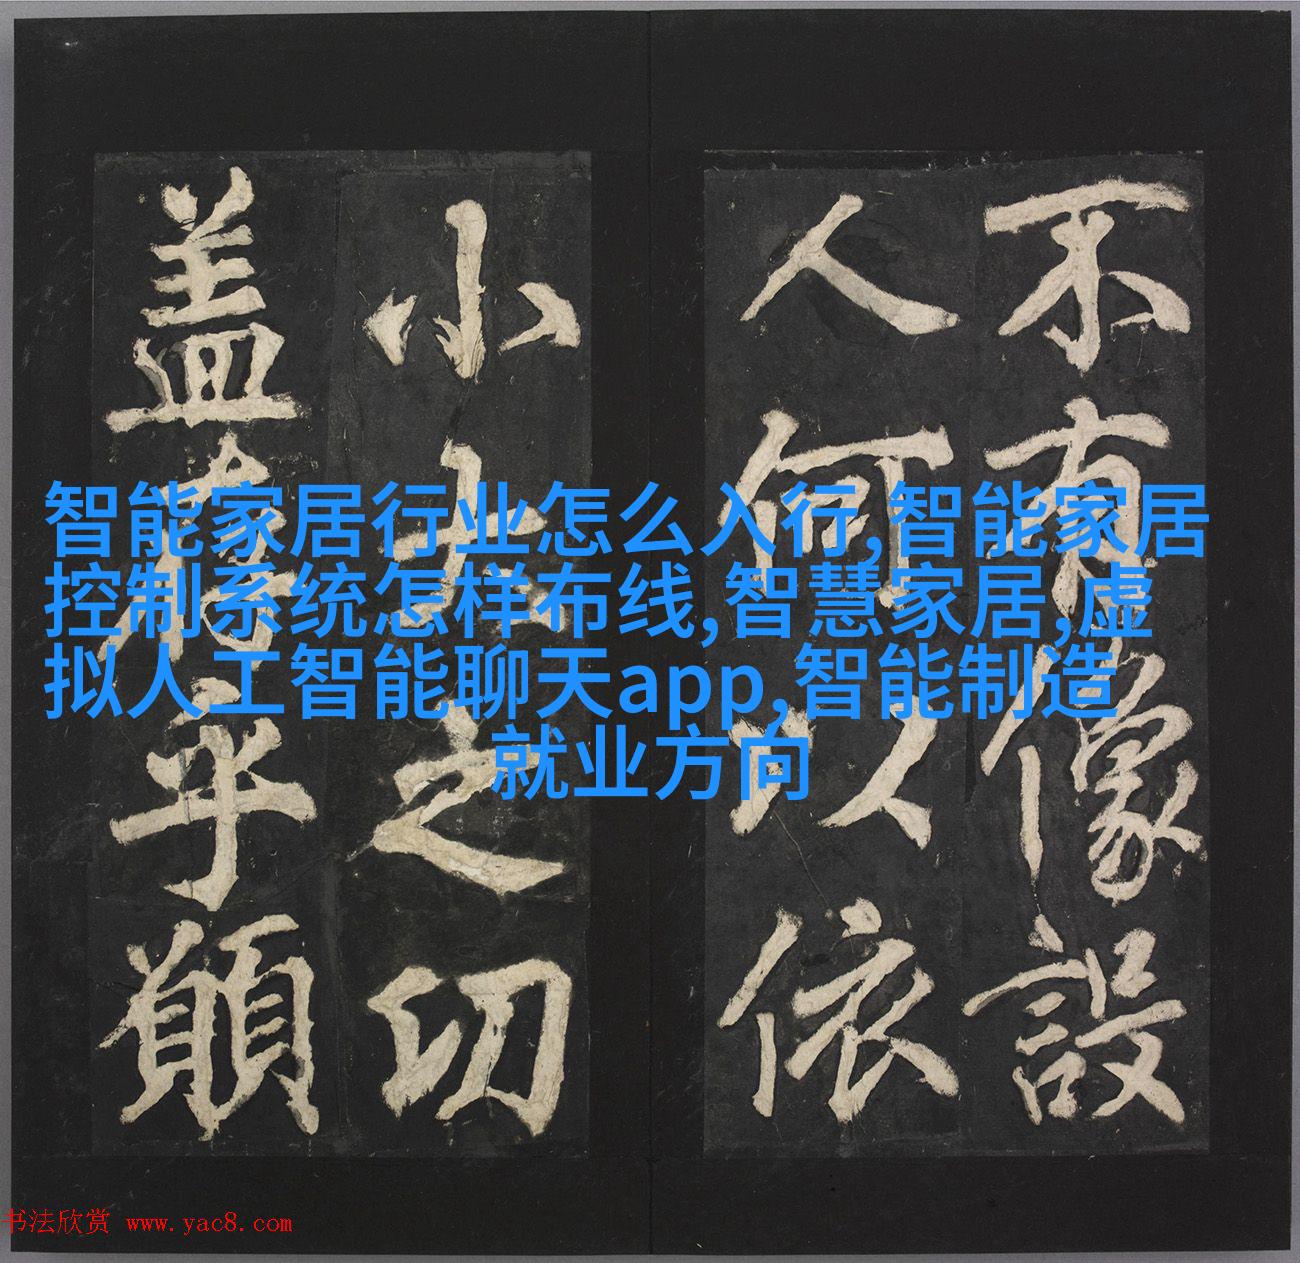 智能家居行业怎么入行,智能家居
控制系统怎样布线,智慧家居,虚
拟人工智能聊天app,智能制造
就业方向
不有像設
人何以依
小之切
盖乎願
书法欣赏 www.yac8.com